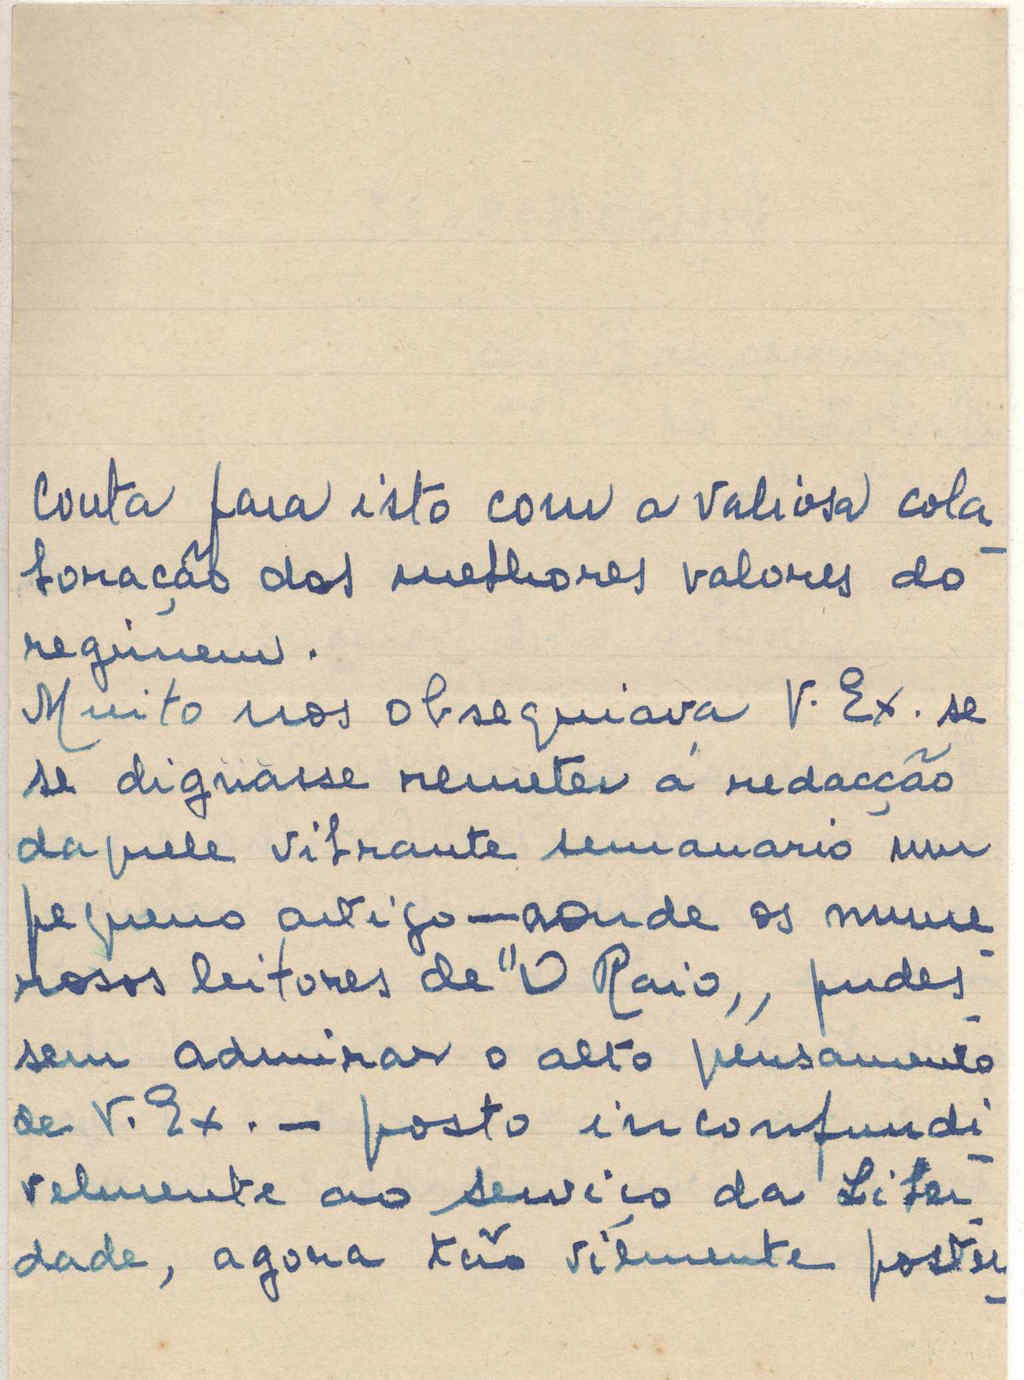 Conta para isto com a valiosa cola-
boração dos melhores valores do
regimem.
Muito nos obsequiava V. Ex. se
se dignasse remeter á redacção
daquele vibrante semanario um
pequeno artigo — aonde os nume-
rosos leitores de "O Raio,, pudes-
sem admirar o alto pensamento
de V. Ex. — posto inconfundi-
velmente ao serviço da Liber-
dade, agora tão vilmente poster-